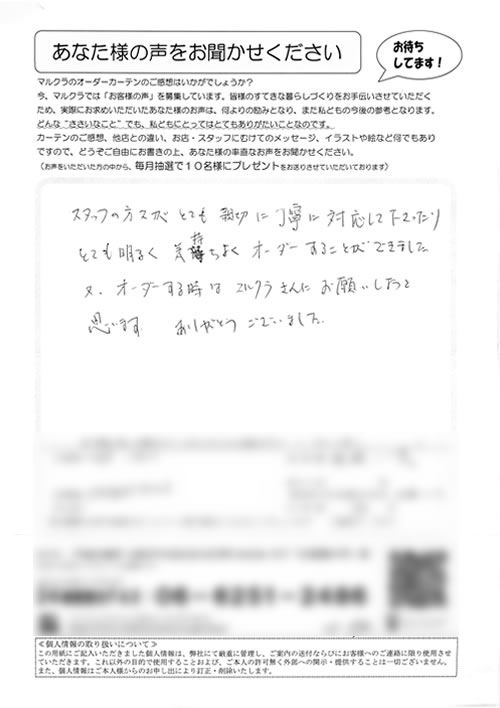 あなた様の声をお聞かせください
お待ち
してます！
マルクラのオーダーカーテンのご感想はいかがでしょうか？
今、マルクラでは「お客様の声」を募集しています。皆様のすてきな暮らしづくりをお手伝いさせていただく
ため、実際にお求めいただいたあなた様のお声は、何よりの励みとなり、また私どもの今後の参考となります。
どんな“ささいなこと”でも、私どもにとってはとてもありがたいことなのです。
カーテンのご感想、他店との違い、お店・スタッフにむけてのメッセージ、イラストや絵など何でもあり
ですので、どうぞご自由にお書きの上、あなた様の率直なお声をお聞かせください。
（お声をいただいた方の中から、毎月抽選で１０名様にプレゼントをお送りさせていただいております）
スタッフの方々が とても 親切に 丁寧に 対応して下さったり
とても 明るく 気持ちよく オーダーすることができました
又、オーダーする時は マルクラさんに お願いしたいと
思います。 ありがとう ございました。
≪個人情報の取り扱いについて≫
この用紙にご記入いただきました個人情報は、弊社にて厳重に管理し、ご案内の送付ならびにお客様へのご連絡に限り使用させ
ていただきます。これ以外の目的で使用することおよび、ご本人の許可無く外部への開示・提供することは一切ございません。
また、個人情報はご本人様からのお申し出により訂正・削除いたします。